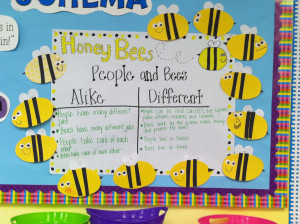 SCHEMA
s in
in!"
Honey Bees
People and Bees
Alike
Different
People have many different jobs
Bees have many different jobs
People take care of each other
Bees take care of each other
People live in houses
Bees live in hives